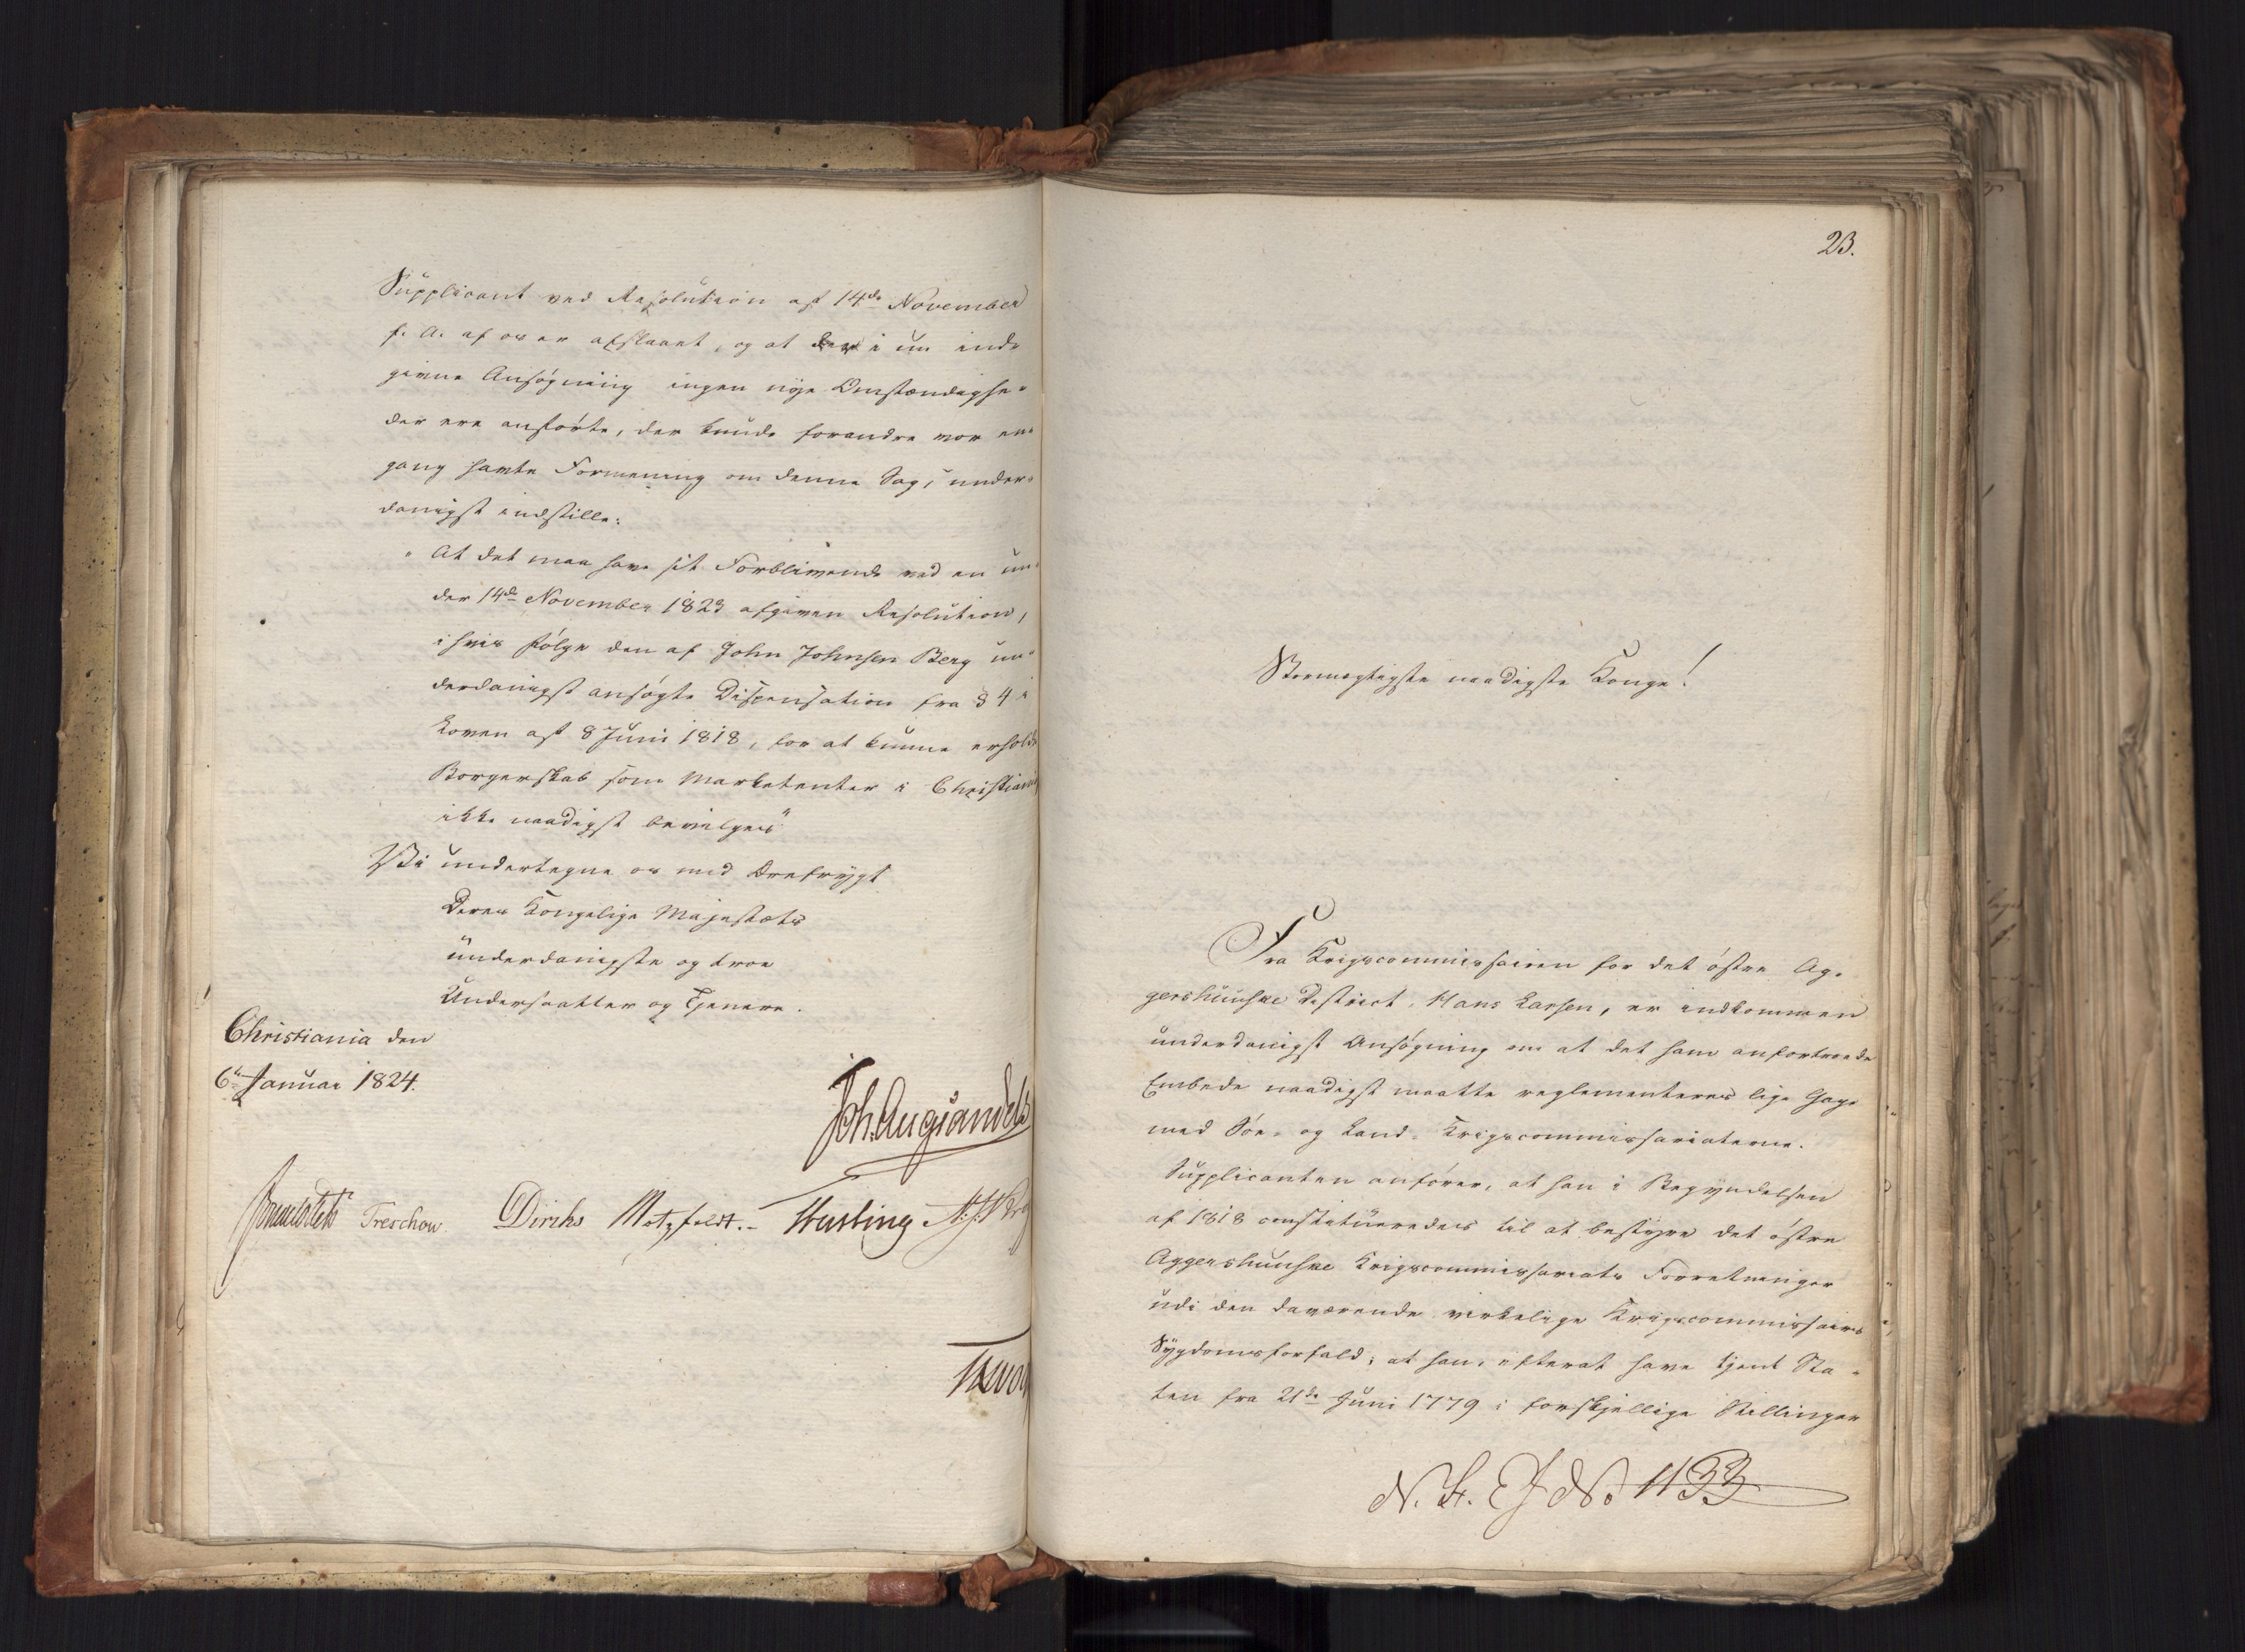 Supplicant ved Resolution af 14de November
f. A. af os er afslaaet, og at der i nu inde
givne Ansøgning ingen nye Omstændighe-
der ere anførte, der kunde forandre vor en-
gang havte Formening om denne Sag, under-
danigst indstille:
"At det maa have sit Forblivende ved en un-
der 14de November 1823 afgiven Resolution,
i hvis følge den af John Johnsen Berg un-
derdanigst ansøgte Dispensation fra § 4 i
Loven af 8 Juni 1818, for at kunne erholde
Borgerskab som Marketenter i Christiania
ikke naadigst bevilges"
Vi undertegne os med Ærefrygt
Deres Kongelige Majestæts
underdanigste og troe
Undersaatter og Tjenere.
Christiania den
6te Januar 1824.
Joh. Aug. Sandels
Treschow Dircks Motzfeldt. Husting
23.
Stormægtigste naadigste Konge!
Fra Krigscommissairen for det østre Ag-
gershuuske District, Hans Larsen, er indkommen
underdanigst Ansøgning om at det ham anfortroede
Embede naadigst maatte reglementeres lige Gage
med Søe- og Land-Krigscommissariaterne.
Supplicanten anfører, at han i Begyndelsen
af 1818 constitueredes til at bestyre det østre
Aggershuuske Krigscommissariats Forretninger
udi den daværende virkelige Krigscommissairs
Sygdomsforfald; at han, efterat have tjent Sta-
ten fra 21de Juni 1779 i forskjellige Stillinger
No 1133